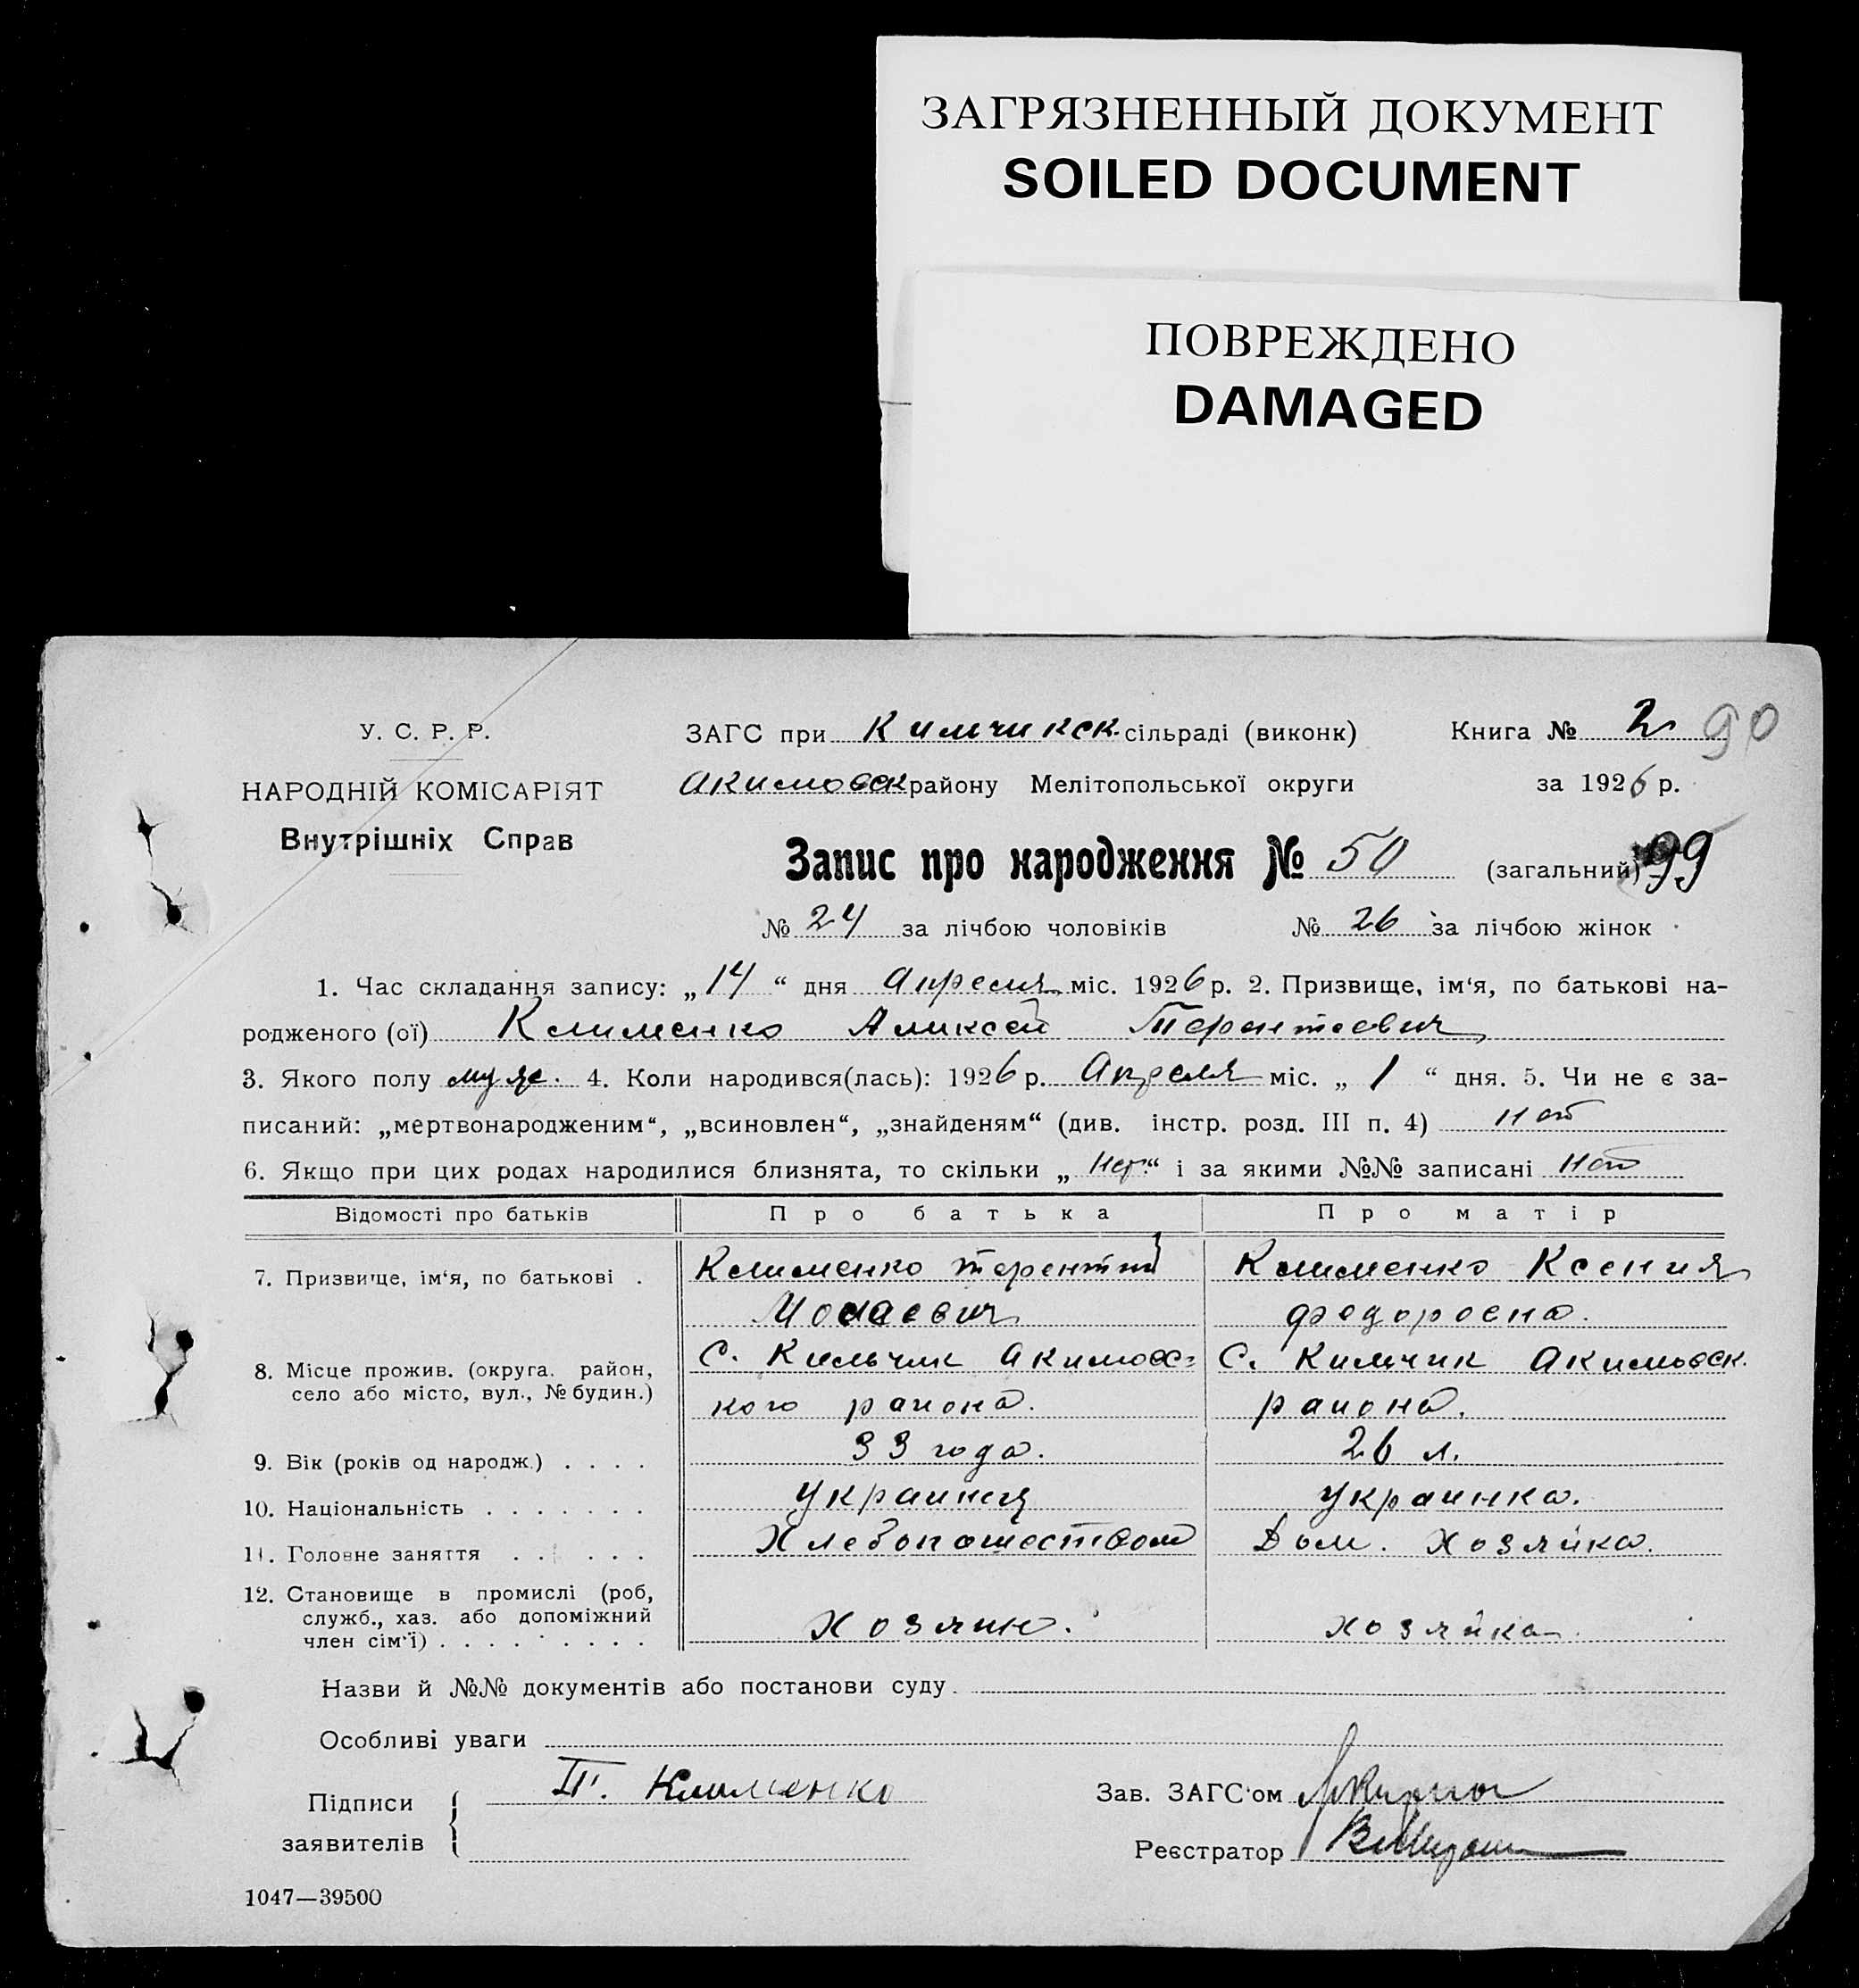 ЗАГРЯЗНЕННЫЙ ДОКУМЕНТ
SOILED DOCUMENT
ПОВРЕЖДЕНО
DAMAGED
У. С. Р. Р.
НАРОДНІЙ КОМІСАРІЯТ
Внутрішніх Справ
ЗАГС при Кимчикск. сільраді (виконк) Книга № 2 90
Акимовск району Мелітопольської округи за 1926 р.
Запис про народження № 50 (загальний) 99
№ 24 за лічбою чоловіків № 26 за лічбою жінок
1. Час складання запису: „14“ дня Апреля міс. 1926 р. 2. Призвище, ім‘я, по батькові на-
родженого (ої) Клименко Аликсей Терентеевич
3. Якого полу муж. 4. Коли народився(лась): 1926 р. Апреля міс. „1“ дня. 5. Чи не є за-
писаний: „мертвонародженим“, „всиновлен“, „знайденям“ (див. інстр. розд. III п. 4) нет
6. Якщо при цих родах народилися близнята, то скільки „нет“ і за якими №№ записані нет
Відомості про батьків Про батька Про матір
7. Призвище, ім‘я, по батькові . Клименко Терентий Клименко Ксения
федоровна.
8. Місце прожив. (округа. район, С. Кильчик Акимовс= С. Кимчик Акимовск.
село або місто, вул., № будин.) кого раиона. раиона.
9. Вік (років од народж.) . . . . 33 года. 26 л.
10. Національність . . . . . . . Украинец Украинка.
11. Головне заняття . . . . . Хлебопашеством Дом. Хозяйка.
12. Становище в промислі (роб,
служб., хаз. або допоміжний
член сім‘ї) . . . . . . . . . Хозяин. хозяйка.
Назви й №№ документів або постанови суду.
Особливі уваги
Підписи Т. Клименко Зав. ЗАГС‘ом
заявителів Реєстратор
1047—39500